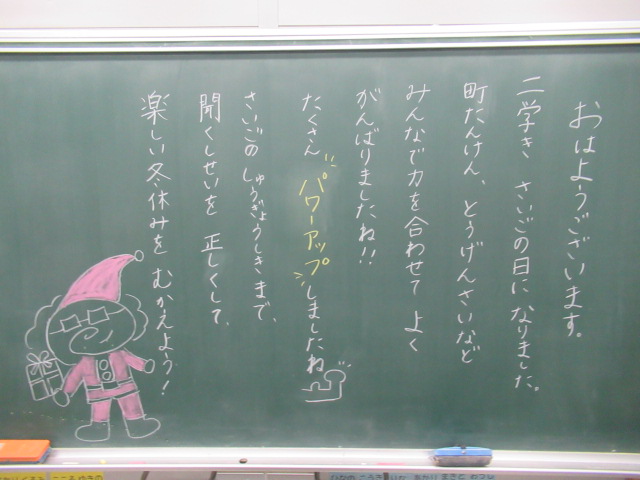 おはようございます。
二学き さいごの日になりました。
町たんけん、とうげんさいなど
みんなで力を合わせて よく
がんばりましたね!!
たくさん パワーアップしましたね
さいごの しゅうぎょうしきまで、
聞くしせいを 正しくして、
楽しい冬休みを むかえよう!